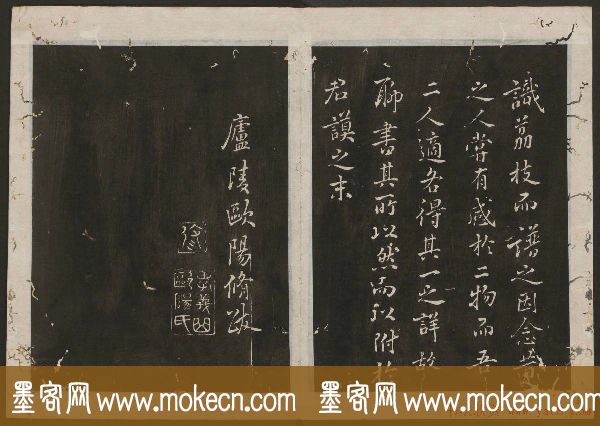 識荔枝而譜之因念
之人嘗有感於二物而吾
二人適各得其一之詳故
聊書其所以然而以附於
君謨之末
廬陵歐陽脩跋
歐陽氏
墨客网 www.mokecn.com 墨客网 www.mokecn.com